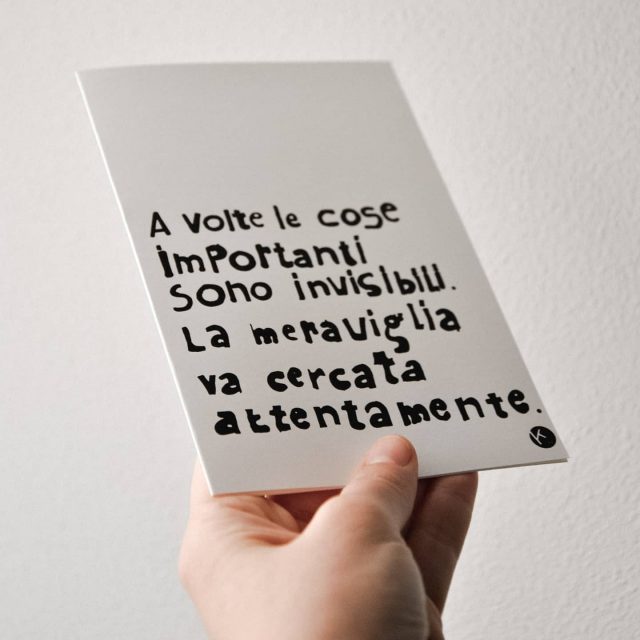 A volte le cose
importanti
sono invisibili.
La meraviglia
va cercata
attentamente.
K